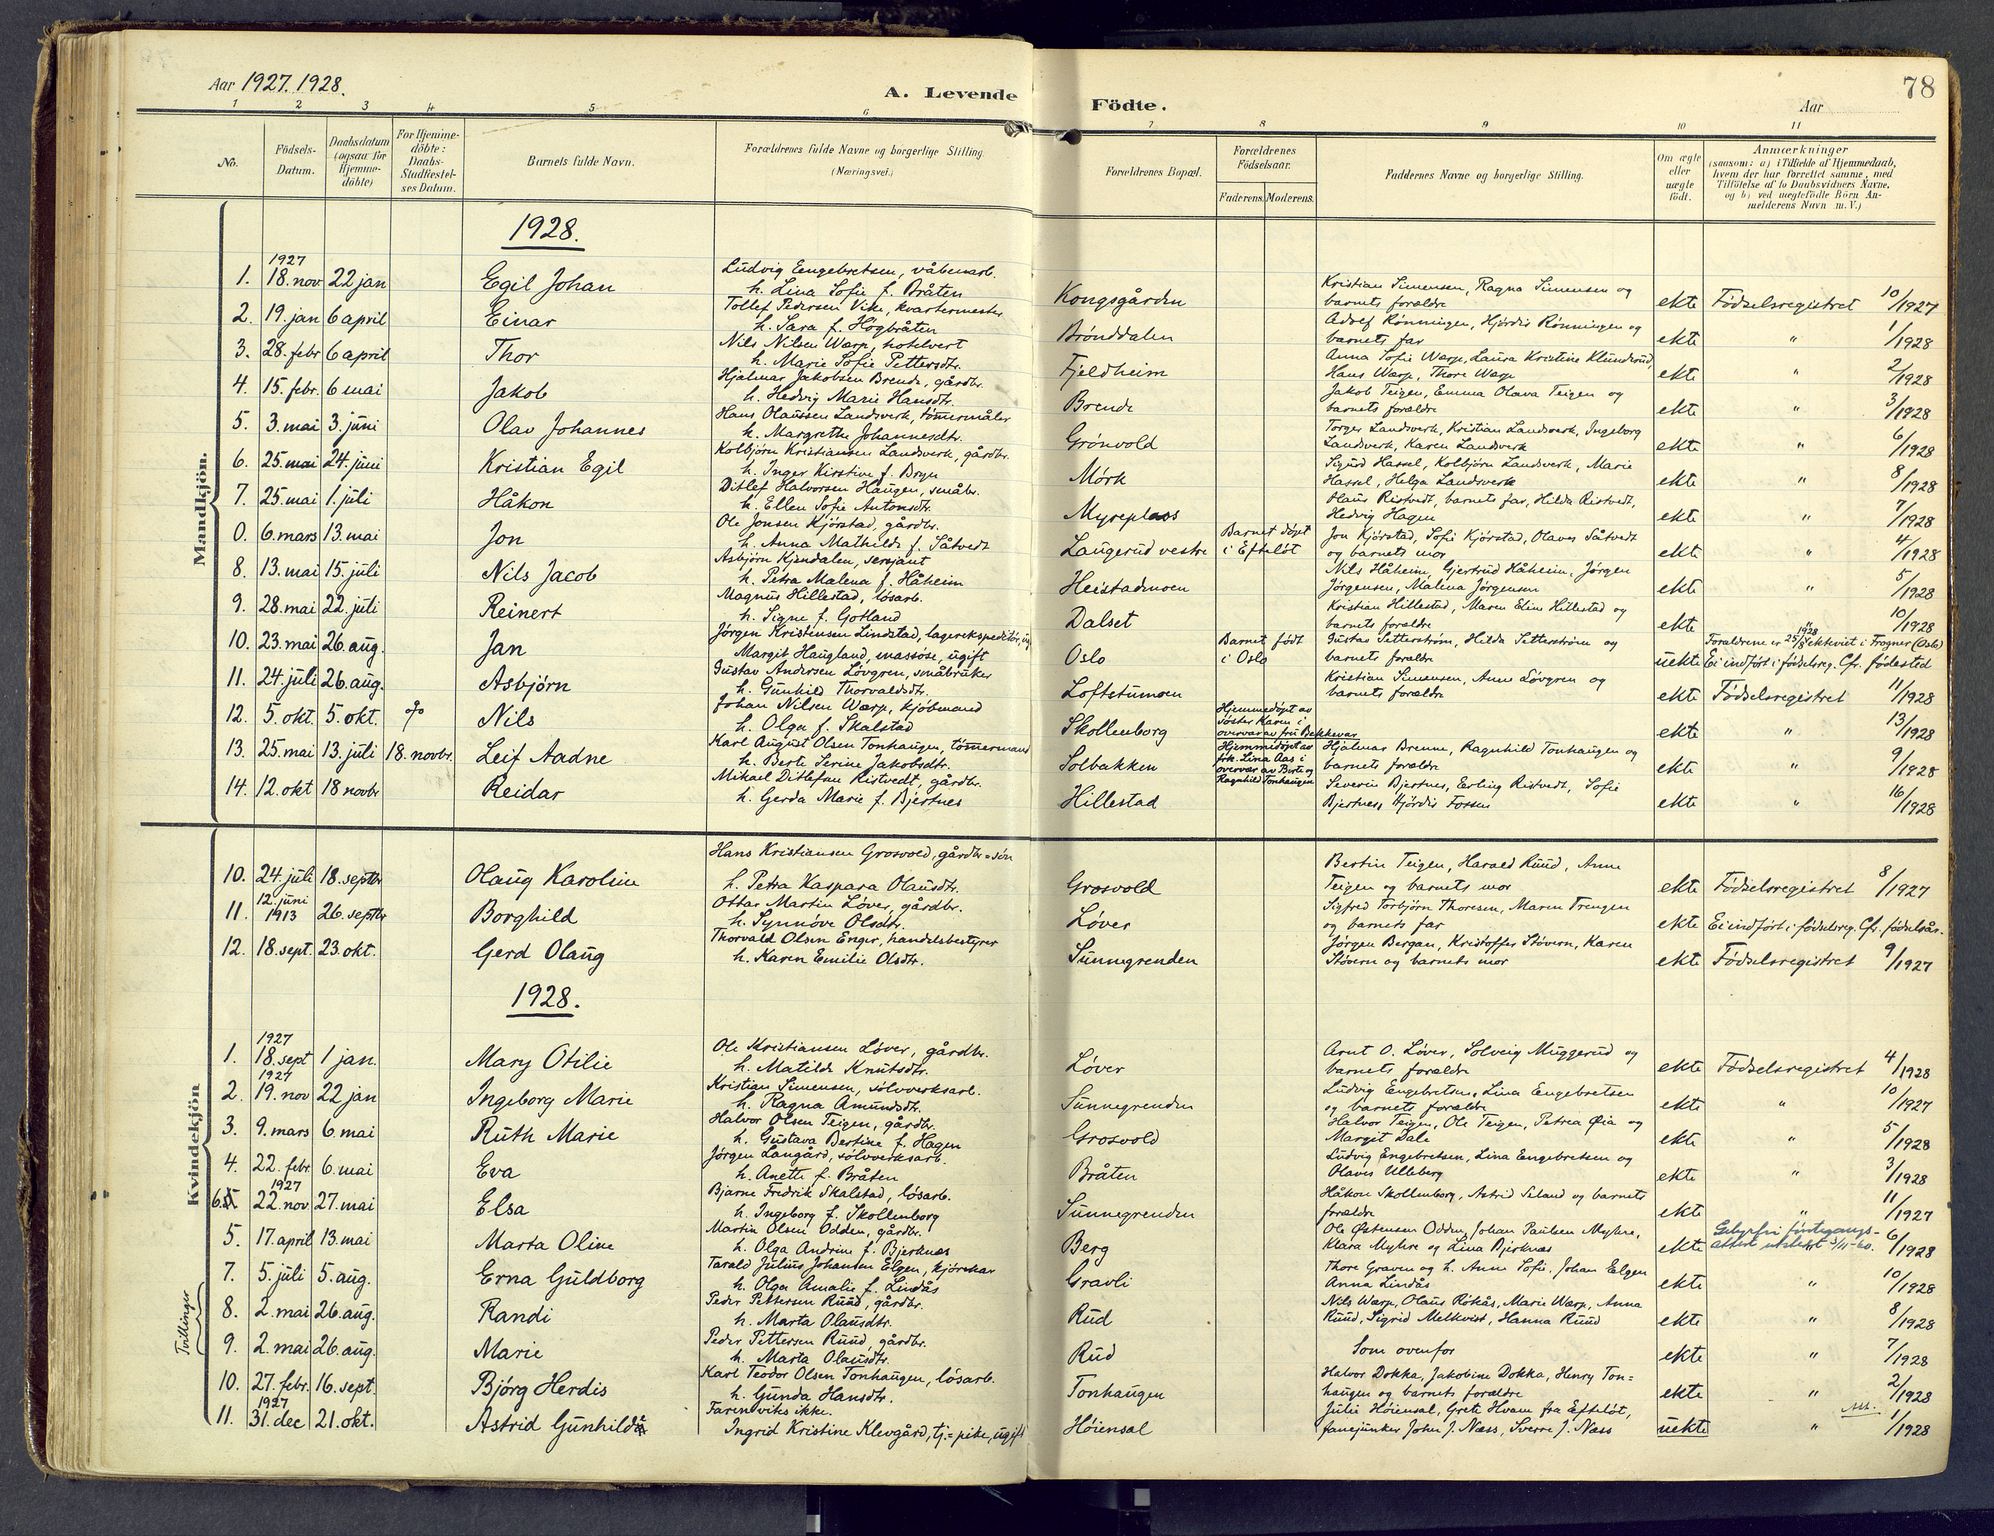 78
Aar 1927. 1928.
A. Levende Födte.
Aar
1 2 3 4 5 6 7 8 9 10 11
No.
Födsels-Datum.
Daabsdatum (ogsaa for Hjemmedöbte)
For Hjemmedöbte: Daabs-Stadfæstelses Datum.
Barnets fulde Navn.
Forældrenes fulde Navne og borgerlige Stilling. (Næringsvei.)
Forældrenes Bopæl.
Forældrenes Födselsaar.
Faderens. Moderens.
Faddernes Navne og borgerlige Stilling.
Om ægte eller uægte födt.
Anmærkninger
(saasom: a) i Tilfælde af Hjemmedaab, hvem der har forrettet samme, med Tilföielse af to Daabsvidners Navne, og b) ved uægtefödte Börn Anmelderens Navn m. V.)
Mandkjön.
1928.
1. 1927 18. nov 22 jan Egil Johan Ludvig Engebretsen, våbenarb. h. Lina Sofie f. Bråten Kongsgården Kristian Simensen, Ragna Simensen og barnets forældre ekte Fødselsregistret 10/1927
2. 19. jan 6 april Einar Tollef Pedersen Vike, kvartermester h. Sara f. Høgbråten Brønddalen Adolf Rønningen, Hjørdis Rønningen og barnets far ekte " 1/1928
3. 28. febr 6 april Thor Nils Nilsen Wærp, h. Marie Sofie Pettersdtr. Fjeldheim Anna Sofie Wærp, Laura Kristine Klundsrud, Hans Wærp, Thore Wærp ekte " 2/1928
4. 15. febr. 6 mai Jakob Hjalmar Jakobsen Brende, gårdbr. h. Hedvig Marie Hansdtr. Brende Jakob Teigen, Emma Olava Teigen og barnets forældre ekte " 3/1928
5. 3. mai 3. juni Olav Johannes Hans Olaussen Landsverk, tømmermåler h. Margrethe Johannesdtr. Grønvold Torger Landsverk, Kristian Landsverk, Ingeborg Landsverk, Karen Landsverk ekte " 6/1928
6. 25. mai 24. juni Kristian Egil Kolbjørn Kristiansen Landsverk, gårdbr. h. Inger Kirstine f. Bryn Mørk Sigurd Hassel, Kolbjørn Landsverk, Marie Hassel, Helga Landsverk ekte " 8/1928
7. 25. mai 1. juli Håkon Ditlef Halvorsen Haugen, småbr. h. Ellen Sofie Antonsdtr. Myreplass Olaus Ristvedt, barnets far, Hilda Ristvedt, Hedvig Hagen ekte " 7/1928
0. 6. mars 13. mai Jon Ole Jonsen Kjørstad, gårdbr. h. Anna Mathilde f. Såtvedt Laugerud vestre Barnet døpt i Efteløt Jon Kjørstad, Sofie Kjørstad, Olaves Såtvedt og barnets mor ekte " 4/1928
8. 13. mai 15. juli Nils Jacob Asbjørn Kjendalen, sersjant h. Petra Malena f. Håheim Heistadmoen Nils Håheim, Gjertrud Håheim, Jørgen Jørgensen, Malena Jørgensen ekte " 5/1928
9. 28. mai 22. juli Reinert Magnus Hillestad, løsarb. h. Signe f. Gotland Dalset Kristian Hillestad, Maren Eline Hillestad og barnets forældre ekte " 10/1928
10. 23. mai 26. aug. Jan Jørgen Kristensen Lindstad, lagerekspeditør, ug Margit Haugland, massøse, ugift Oslo Barnet født i Oslo Gustav Setterstrøm, Hilda Setterstrøm og barnets forældre uekte Foraldrene er 25/8 1928 ekteviet i Frogner (Oslo) Ei indført i fødselsreg. Cfr. fødested
11. 24. juli 26. aug. Asbjørn Gustav Andersen Løvgren, småbruker h. Gunhild Thorvaldsdtr. Loftstumoen Kristian Simensen, Anne Løvgren og barnets forældre ekte Fødselsregistret 11/1928
12. 5. okt. 5. okt. Nils Johan Nilsen Wærp, kjøbmand h. Olga f. Skalstad Skollenborg Hjemmedøpt av søster Karen i overvær av fru Bekkevar ekte " 13/1928
13. 25. mai 13. juli 18. novbr. Leif Aadne Karl August Olsen Tonhaugen, tømmermand h. Berte Serine Jakobsdtr. Solbakken Hjemmedøpt av frk. Lina Aas i overvær av Berte og Ragnhild Tonhaugen Hjalmar Brenne, Ragnhild Tonhaugen og barnets forældre ekte " 9/1928
14. 12. okt 18 novbr Reidar Mikael Ditlefsen Ristvedt, gårdbr. h. Gerda Marie f. Bjertnes Hillestad Severin Bjertnes, Erling Ristvedt, Sofie Bjertnes, Hjørdis Fossen ekte " 16/1928
Kvindekjön
10. 24. juli 18. septbr Olaug Karoline Hans Kristiansen Grosvold, gårdbr=søn h. Petra Kaspara Olausdtr. Grosvold Bertin Teigen, Harald Ruud, Anne Teigen og barnets mor ekte Fødselsregistret 8/1927
11. 12. juni 1913 26. septbr Borghild Ottar Martin Løver, gårdbr. h. Synnøve Olsdtr. Løver Sigfred Torbjørn Thoresen, Maren Trengen og barnets far ekte Ei indført i fødselsreg. Cfr. fødselsår.
12. 18. sept. 23. okt. Gerd Olaug Thorvald Olsen Enger, handelsbestyrer h. Karen Emilie Olsdtr. Sunnegrenden Jørgen Bergan, Kristoffer Støvern, Karen Støvern og barnets mor ekte Fødselsregistret 9/1927
1928.
1. 1927 18. sept 1 jan. Mary Otilie Ole Kristiansen Løver, gårdbr. h. Matilde Knutsdtr. Løver Arnt O. Løver, Solveig Muggerud og barnets forældre ekte Fødselsregistret 4/1928
2. 1927 19. nov 22 jan Ingeborg Marie Kristian Simensen, sølvverksarb. h. Ragna Amundsdtr. Sunnegrenden Ludvig Engebretsen, Lina Engebretsen og barnets forældre ekte " 10/1927
3. 9. mars 6. mai Ruth Marie Halvor Olsen Teigen, gårdbr. h. Gustava Bertine f. Hagen Grosvold Halvor Teigen, Ole Teigen, Petrea Øia og Margit Dale ekte " 5/1928
4. 22. febr. 6. mai Eva Jørgen Langård, sølvverksarb. h. Anette f. Bråten Bråten Ludvig Engebretsen, Lina Engebretsen og Olaves Ulleberg ekte " 3/1928
6. 1927 22. nov. 27. mai Elsa Bjarne Fredrik Skalstad, løsarb. h. Ingeborg f. Skollenborg Sunnegrenden Håkon Skollenborg, Astrid Seland og barnets forældre ekte " 11/1927
5. 17. april 13. mai Marta Oline Martin Olsen Odden, gårdbr. h. Olga Andrine f. Bjerknæs Berg Ole Østensen Odden, Johan Paulsen Myhre, Klara Myhre og Lina Bjerknæs ekte Gebyrfri attest utstedt 3/11-60. 6/1928
7. 5. juli 5. aug. Erna Guldborg Tarald Julius Johansen Elgen, kjørekar h. Olga Amalie f. Lindås Gravli Thore Graven og h. Anne Sofie, Johan Eelgen Anna Lindås ekte " 10/1928
Tvillinger
8. 2. mai 26. aug. Randi Peder Pettersen Ruud, gårdbr. h. Marta Olausdtr. Rud Nils Wærp, Olaus Røkås, Marie Wærp, Anna Ruud, Sigrid Melkvist, Hanna Ruud ekte " 8/1928
9. 2. mai 26. aug. Marie Peder Pettersen Ruud, gårdbr. h. Marta Olausdtr. Rud Som ovenfor ekte " 7/1928
10. 27. febr. 16. sept. Bjørg Herdis Karl Teodor Olsen Tonhaugen, løsarb. h. Gunda Hansdtr. Tonhaugen Halvor Dokka, Jakobine Dokka, Henry Tonhaugen og barnets forældre ekte " 2/1928
11. 1927 31. dec 21. okt. Astrid Gunhild Faren vites ikke. Ingrid Kristine Klevgård, tj.=pike, ugift Høiensal Julie Høiensal, Grete Hvam fra Efteløt, fanejunker John J. Næss, Sverre J. Næss uekte " 1/1928